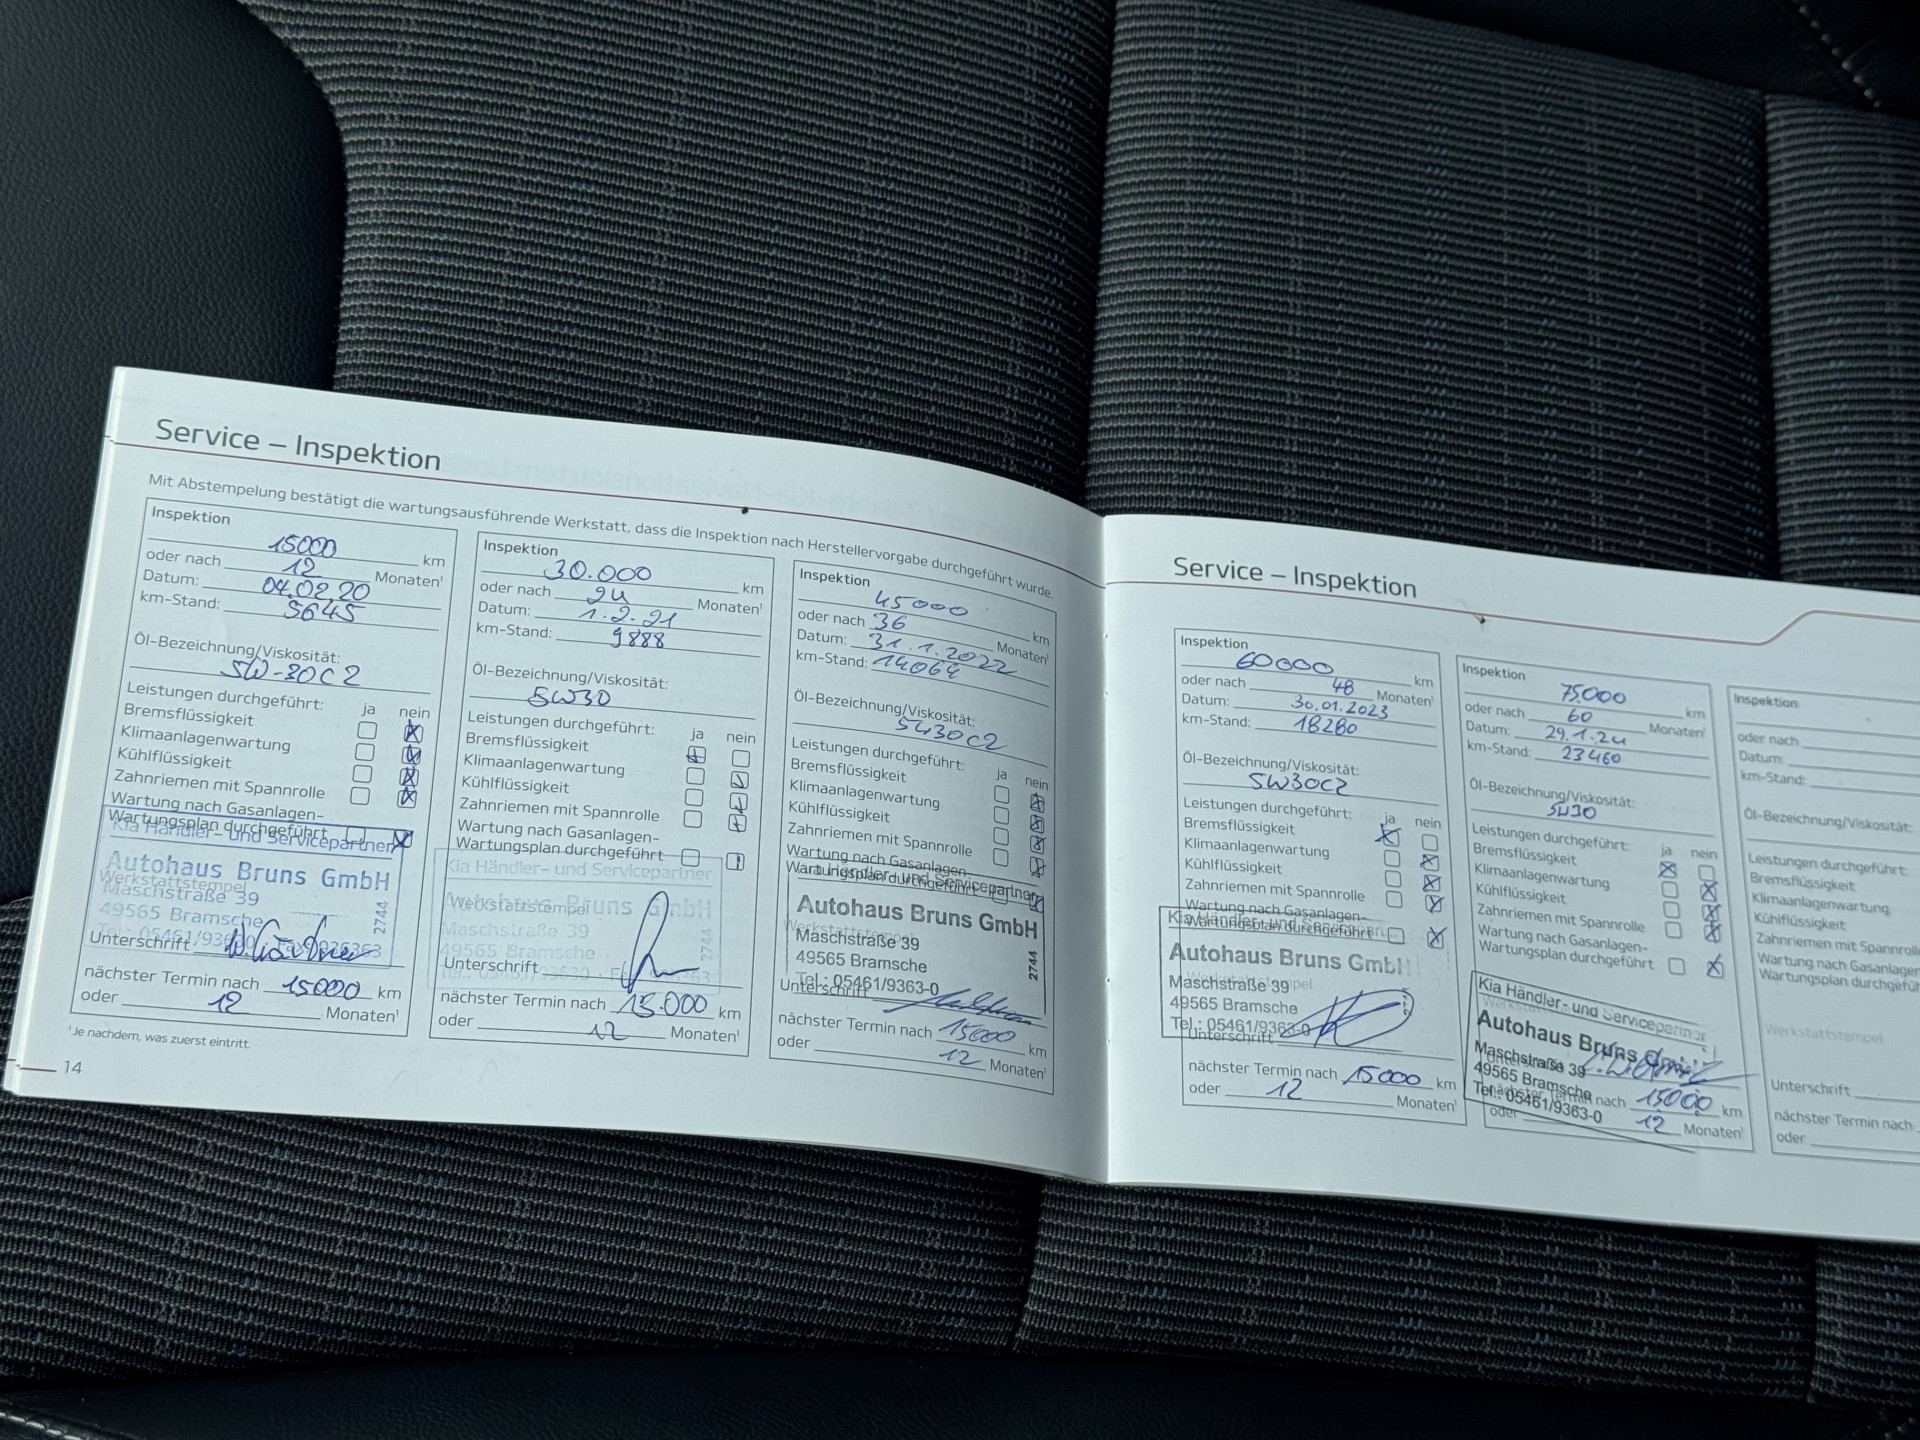 Service – Inspektion
Mit Abstempelung bestätigt die wartungsausführende Werkstatt, dass die Inspektion nach Herstellervorgabe durchgeführt wurde.
Inspektion
15000 km
oder nach 12 Monaten¹
Datum: 04.02.20
km-Stand: 5645
Öl-Bezeichnung/Viskosität:
5W-30 C2
Leistungen durchgeführt: ja nein
Bremsflüssigkeit
Klimaanlagenwartung
Kühlflüssigkeit
Zahnriemen mit Spannrolle
Wartung nach Gasanlagen-
Wartungsplan durchgeführt
Kia Händler- und Servicepartner
Autohaus Bruns GmbH
Werkstattstempel
Maschstraße 39
49565 Bramsche
2744
Unterschrift
nächster Termin nach 15000 km
oder 12 Monaten¹
¹Je nachdem, was zuerst eintritt.
14
Inspektion
30.000 km
oder nach 24 Monaten¹
Datum: 1.2.21
km-Stand: 9888
Öl-Bezeichnung/Viskosität:
5W30
Leistungen durchgeführt: ja nein
Bremsflüssigkeit
Klimaanlagenwartung
Kühlflüssigkeit
Zahnriemen mit Spannrolle
Wartung nach Gasanlagen-
Wartungsplan durchgeführt
Kia Händler- und Servicepartner
Werkstattstempel
Autohaus Bruns GmbH
Maschstraße 39
49565 Bramsche
2744
Unterschrift
nächster Termin nach 15.000 km
oder 12 Monaten¹
Inspektion
45000 km
oder nach 36 Monaten¹
Datum: 31.1.2022
km-Stand: 14064
Öl-Bezeichnung/Viskosität:
5W30C2
Leistungen durchgeführt: ja nein
Bremsflüssigkeit
Klimaanlagenwartung
Kühlflüssigkeit
Zahnriemen mit Spannrolle
Wartung nach Gasanlagen-
Wartungsplan durchgeführt
Kia Händler- und Servicepartner
Autohaus Bruns GmbH
Werkstattstempel
Maschstraße 39
49565 Bramsche
Tel.: 05461/9363-0
2744
Unterschrift
nächster Termin nach 15000 km
oder 12 Monaten¹
Service – Inspektion
Inspektion
60000 km
oder nach 48 Monaten¹
Datum: 30.01.2023
km-Stand: 18280
Öl-Bezeichnung/Viskosität:
5W30C2
Leistungen durchgeführt: ja nein
Bremsflüssigkeit
Klimaanlagenwartung
Kühlflüssigkeit
Zahnriemen mit Spannrolle
Wartung nach Gasanlagen-
Wartungsplan durchgeführt
Kia Händler- und Servicepartner
Autohaus Bruns GmbH
Werkstattstempel
Maschstraße 39
49565 Bramsche
Tel.: 05461/9363-0
Unterschrift
nächster Termin nach 15000 km
oder 12 Monaten¹
Inspektion
75000 km
oder nach 60 Monaten¹
Datum: 29.1.24
km-Stand: 23460
Öl-Bezeichnung/Viskosität:
5W30
Leistungen durchgeführt: ja nein
Bremsflüssigkeit
Klimaanlagenwartung
Kühlflüssigkeit
Zahnriemen mit Spannrolle
Wartung nach Gasanlagen-
Wartungsplan durchgeführt
Kia Händler- und Servicepartner
Werkstattstempel
Autohaus Bruns GmbH
Maschstraße 39
Unterschrift
49565 Bramsche
Tel.: 05461/9363-0
nächster Termin nach 15000 km
oder 12 Monaten¹
Inspektion
oder nach
Datum:
km-Stand:
Öl-Bezeichnung/Viskosität:
Leistungen durchgeführt:
Bremsflüssigkeit
Klimaanlagenwartung
Kühlflüssigkeit
Zahnriemen mit Spannroll
Wartung nach Gasanlagen
Wartungsplan durchgefüh
Werkstattstempel
Unterschrift
nächster Termin nach
oder